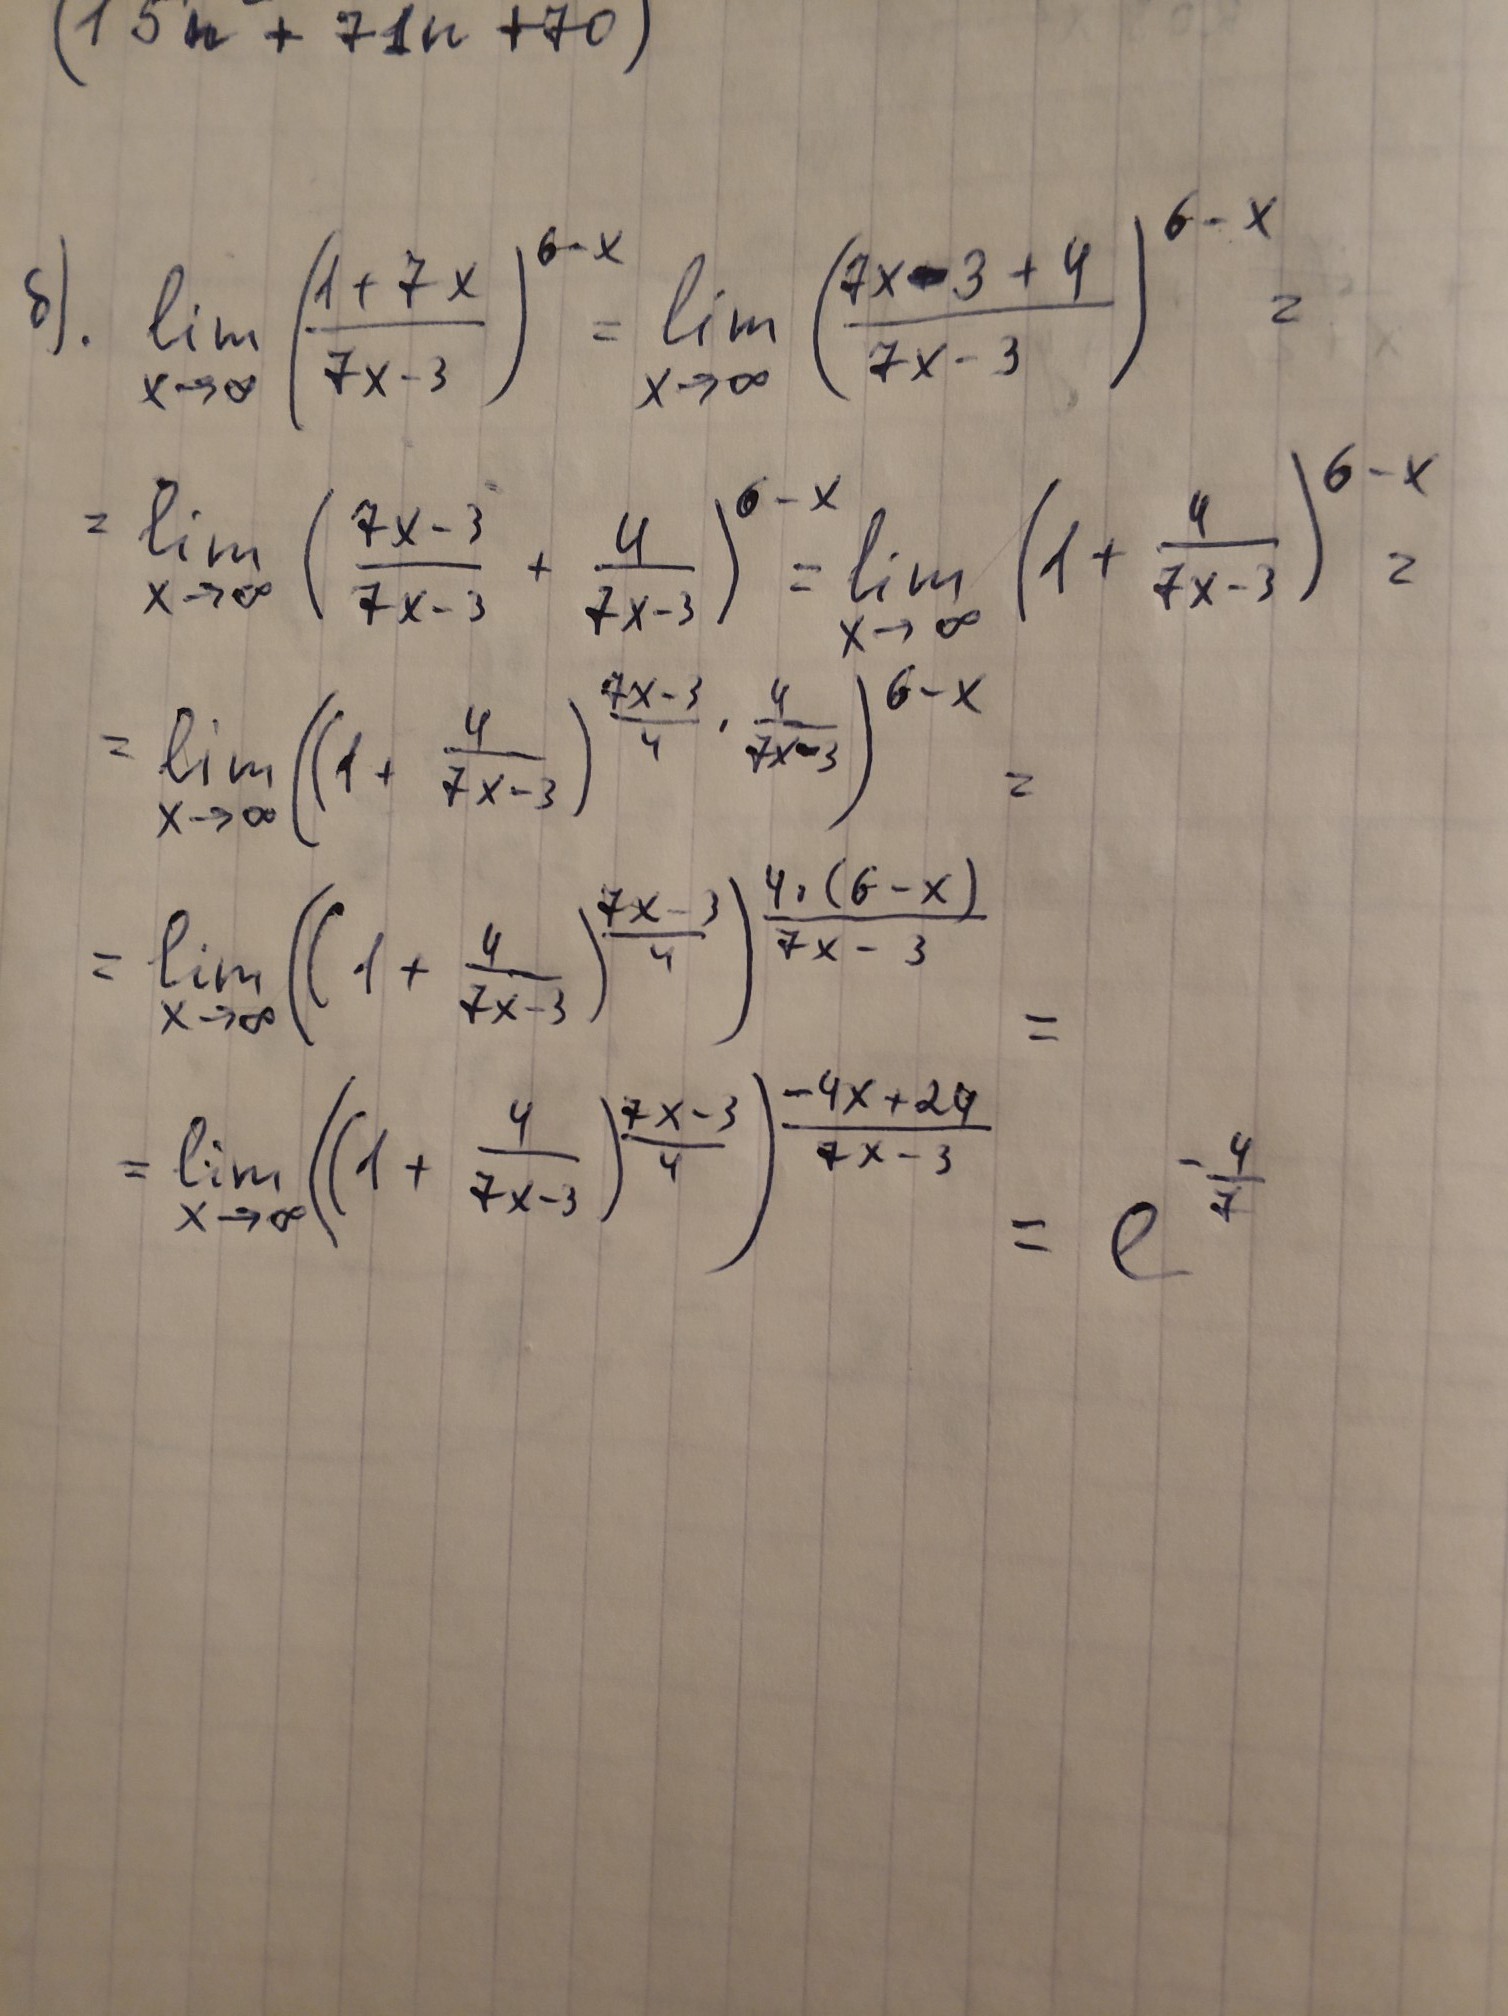 (15n² + 71n + 70)
б). lim x→∞ ((1+7x)/(7x-3))^(6-x) = lim x→∞ ((7x-3+4)/(7x-3))^(6-x) =
= lim x→∞ ((7x-3)/(7x-3) + 4/(7x-3))^(6-x) = lim x→∞ (1 + 4/(7x-3))^(6-x) =
= lim x→∞ ((1 + 4/(7x-3))^((7x-3)/4 · 4/(7x-3)))^(6-x) =
= lim x→∞ ((1 + 4/(7x-3))^((7x-3)/4))^((4·(6-x))/(7x-3)) =
= lim x→∞ ((1 + 4/(7x-3))^((7x-3)/4))^((-4x+24)/(7x-3)) = e^(-4/7)